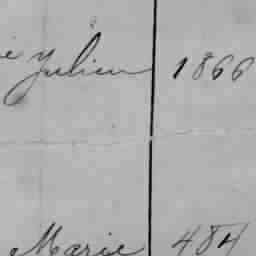 e Julien 1866
Marie 484